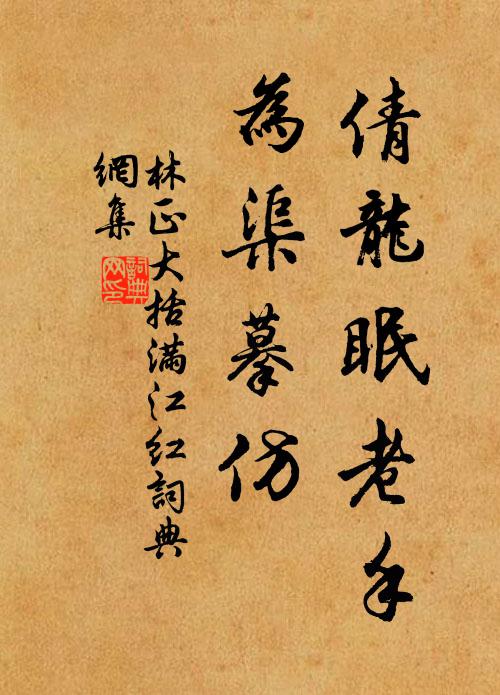 倩龍眠老手
為渠摹仿
林正大括滿江紅詞典
網集
詞典網印